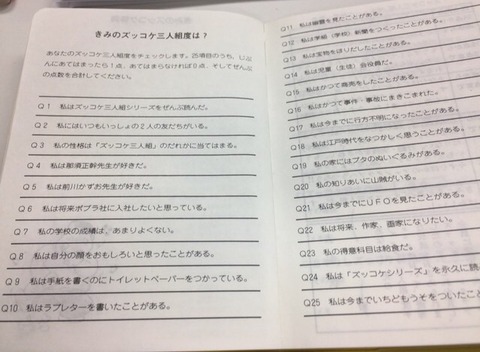 きみのズッコケ三人組度は？
あなたのズッコケ三人組度をチェックします。25項目のうち、じぶ
んにあてはまったら1点、あてはまらなければ0点、そしてぜんぶ
の点数を合計してください。
Q1 私はズッコケ三人組シリーズをぜんぶ読んだ。
Q2 私にはいつもいっしょの2人の友だちがいる。
Q3 私の性格は「ズッコケ三人組」のだれかに当てはまる。
Q4 私は那須正幹先生が好きだ。
Q5 私は前川かずお先生が好きだ。
Q6 私は将来ポプラ社に入社したいと思っている。
Q7 私の学校の成績は、あまりよくない。
Q8 私は自分の顔をおもしろいと思ったことがある。
Q9 私は手紙を書くのにトイレットペーパーをつかっている。
Q10 私はラブレターを書いたことがある。
Q11 私は幽霊を見たことがある。
Q12 私は学級（学校）新聞をつくったことがある。
Q13 私は宝物をほりだしたことがある。
Q14 私は児童（生徒）会役員だ。
Q15 私はかつて商売をしたことがある。
Q16 私はかつて事件・事故にまきこまれた。
Q17 私は今までに行方不明になったことがある。
Q18 私は江戸時代をなつかしく思うことがある。
Q19 私の家にはブタのぬいぐるみがある。
Q20 私の知りあいに山賊がいる。
Q21 私は今までにUFOを見たことがある。
Q22 私は将来、作家、画家になりたい。
Q23 私の得意科目は給食だ。
Q24 私は「ズッコケシリーズ」を永久に読
Q25 私は今までいちどもうそをついたこと